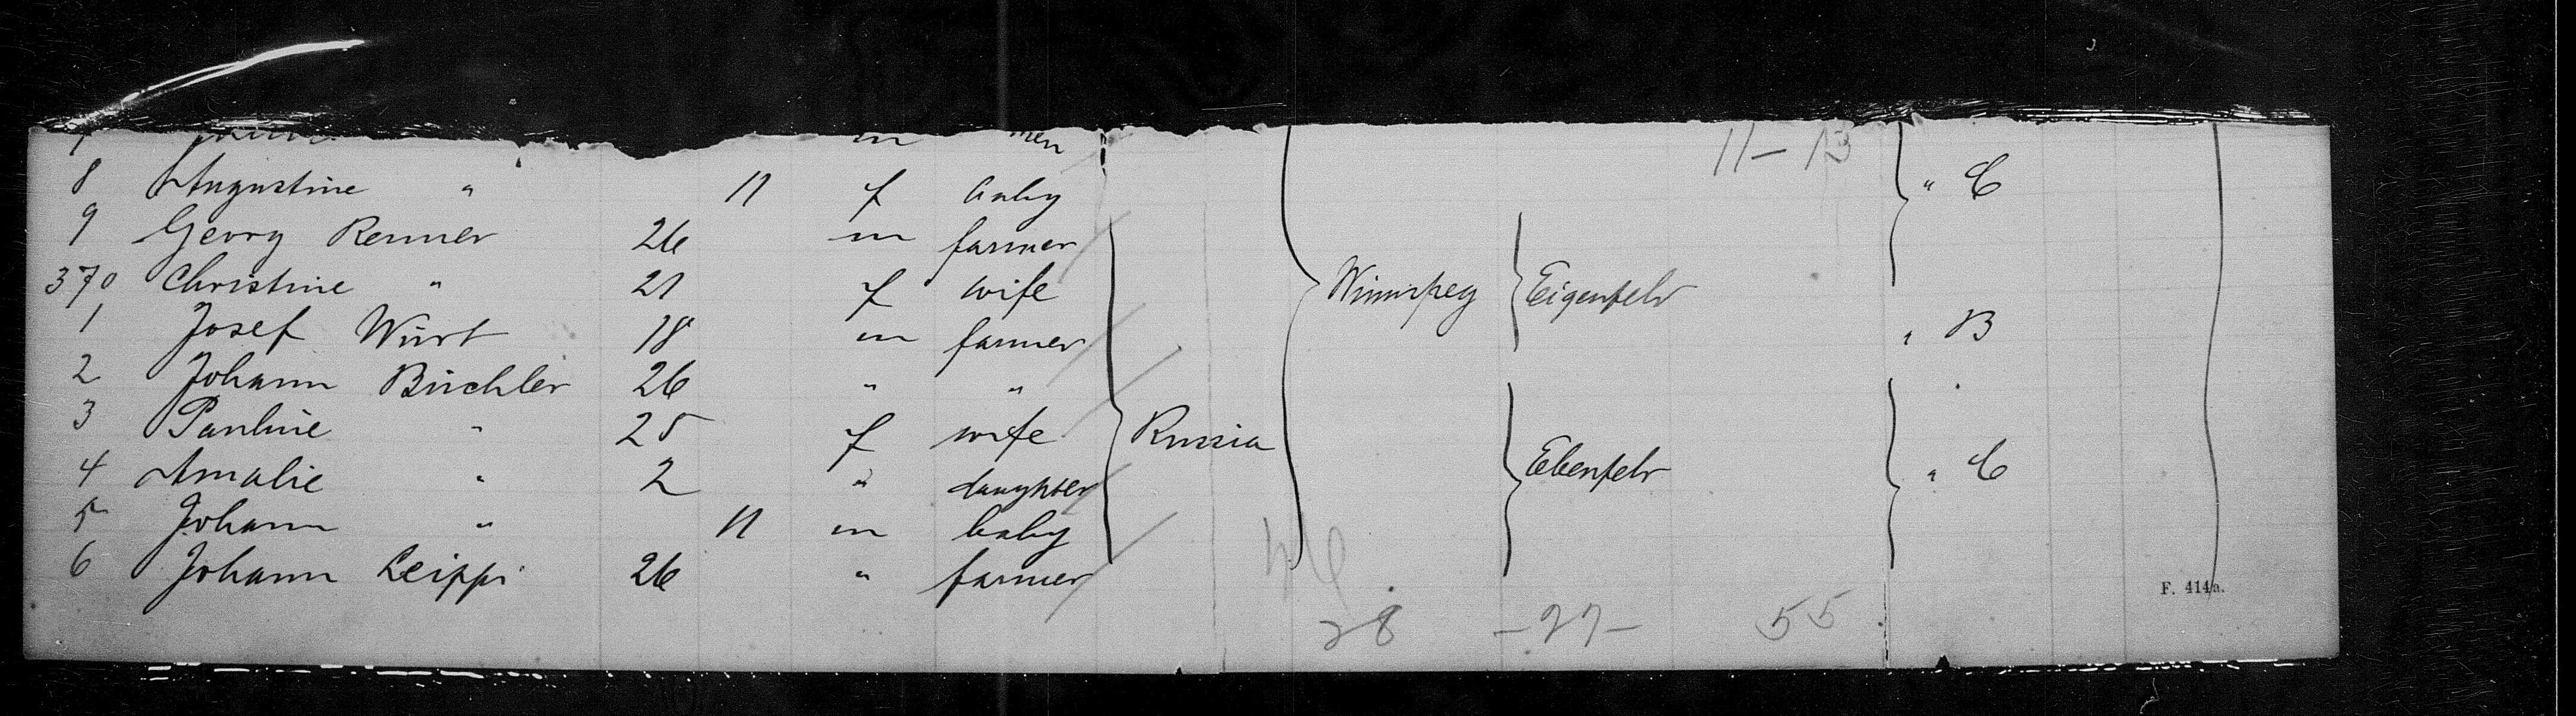 11 – 13
8 Augustine " 11 f baby " C
9 Georg Renner 26 m farmer
370 Christine " 21 f wife Winnipeg Eigenfeld
1 Josef Würt 18 m farmer " B
2 Johann Büchler 26 " "
3 Pauline " 25 f wife Russia
4 Amalie " 2 " daughter Ebenfeld " C
5 Johann " 11 m baby
6 Johann Leippi 26 " farmer
F. 414a.
28 – 27 – 55